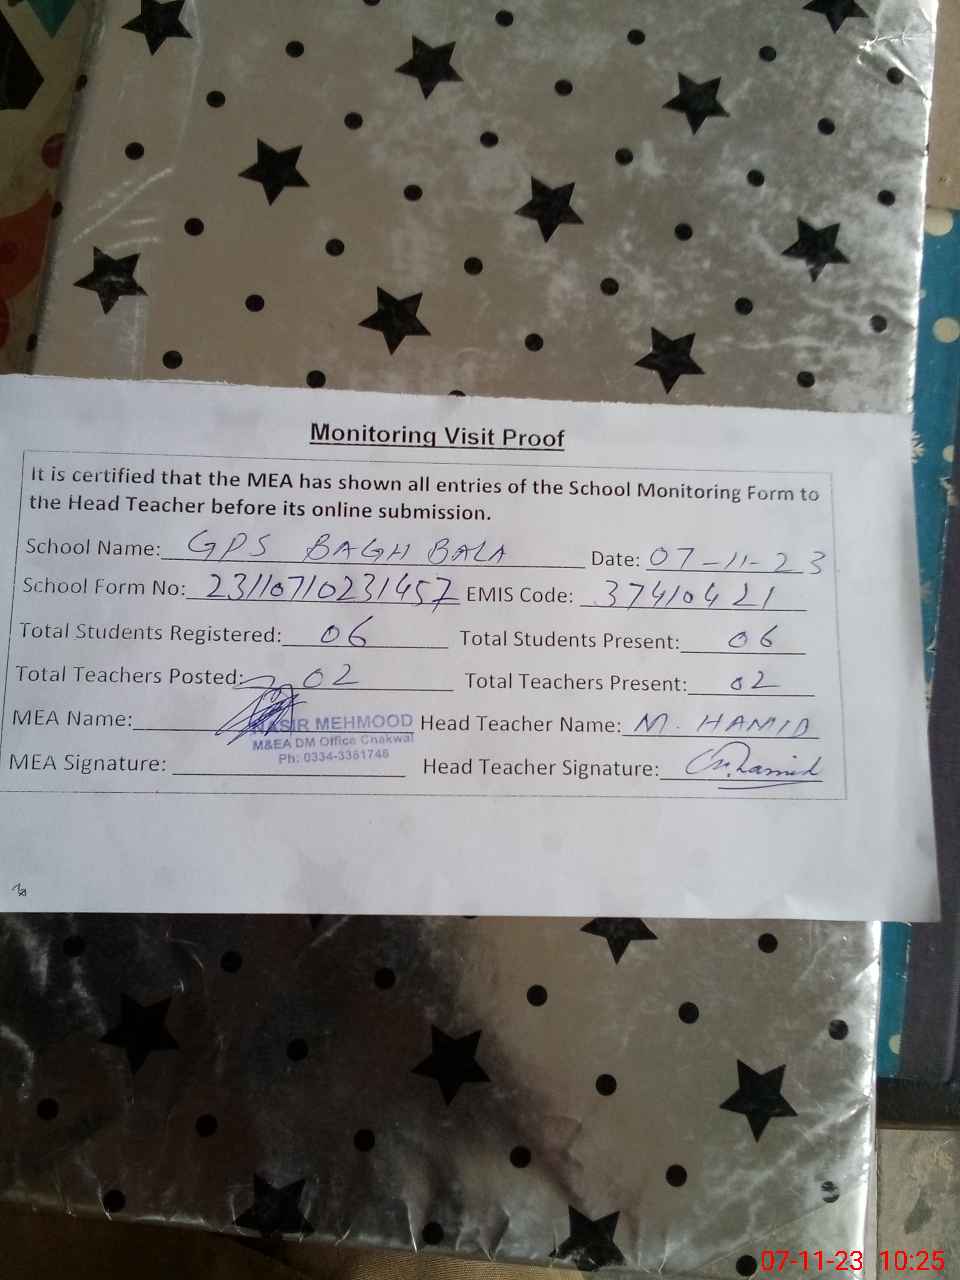 Monitoring Visit Proof
It is certified that the MEA has shown all entries of the School Monitoring Form to
the Head Teacher before its online submission.
School Name: GPS BAGH BALA Date: 07-11-23
School Form No: 23110710231457 EMIS Code: 37410421
Total Students Registered: 06 Total Students Present: 06
Total Teachers Posted: 02 Total Teachers Present: 02
MEA Name: NASIR MEHMOOD Head Teacher Name: M. HAMID
M&EA DM Office Chakwal
Ph: 0334-3361746
MEA Signature: Head Teacher Signature: M. Hamid
07-11-23 10:25